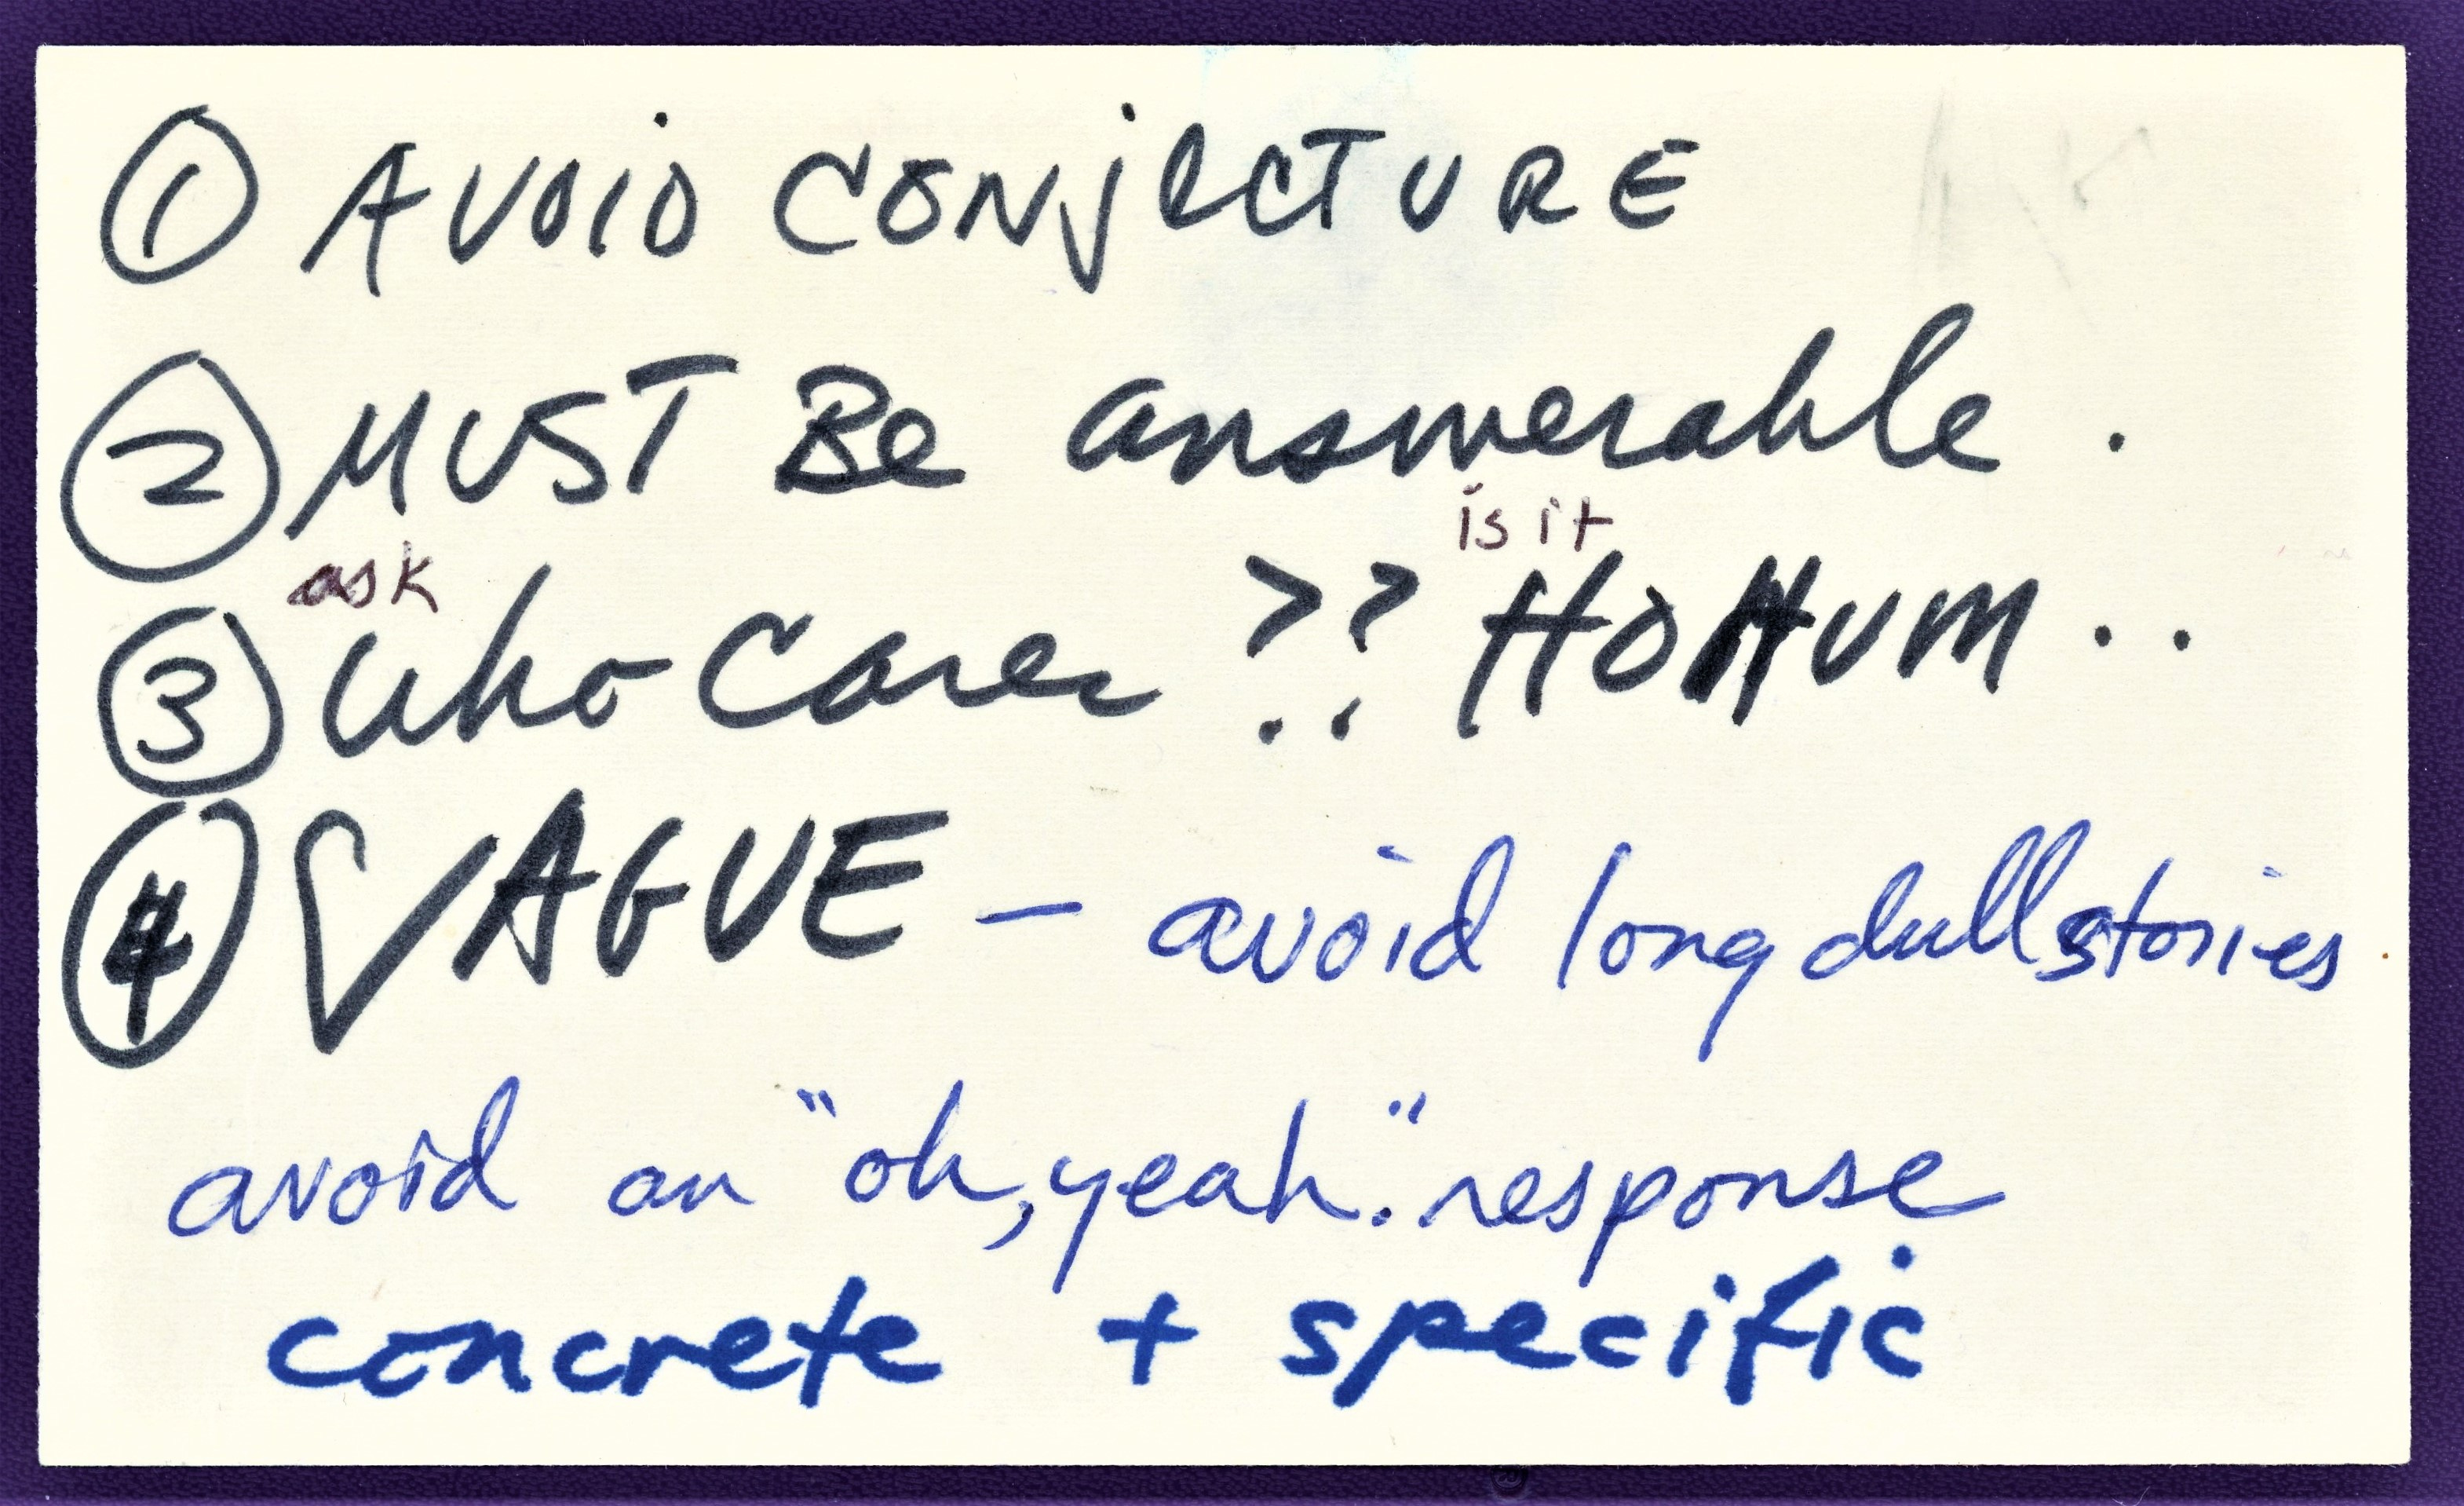 ① AVOID CONJECTURE
② MUST Be answerable.
ask is it
③ Who Cares ?? HOHUM..
④ VAGUE – avoid long dull stories
avoid an "oh, yeah." response
concrete + specific